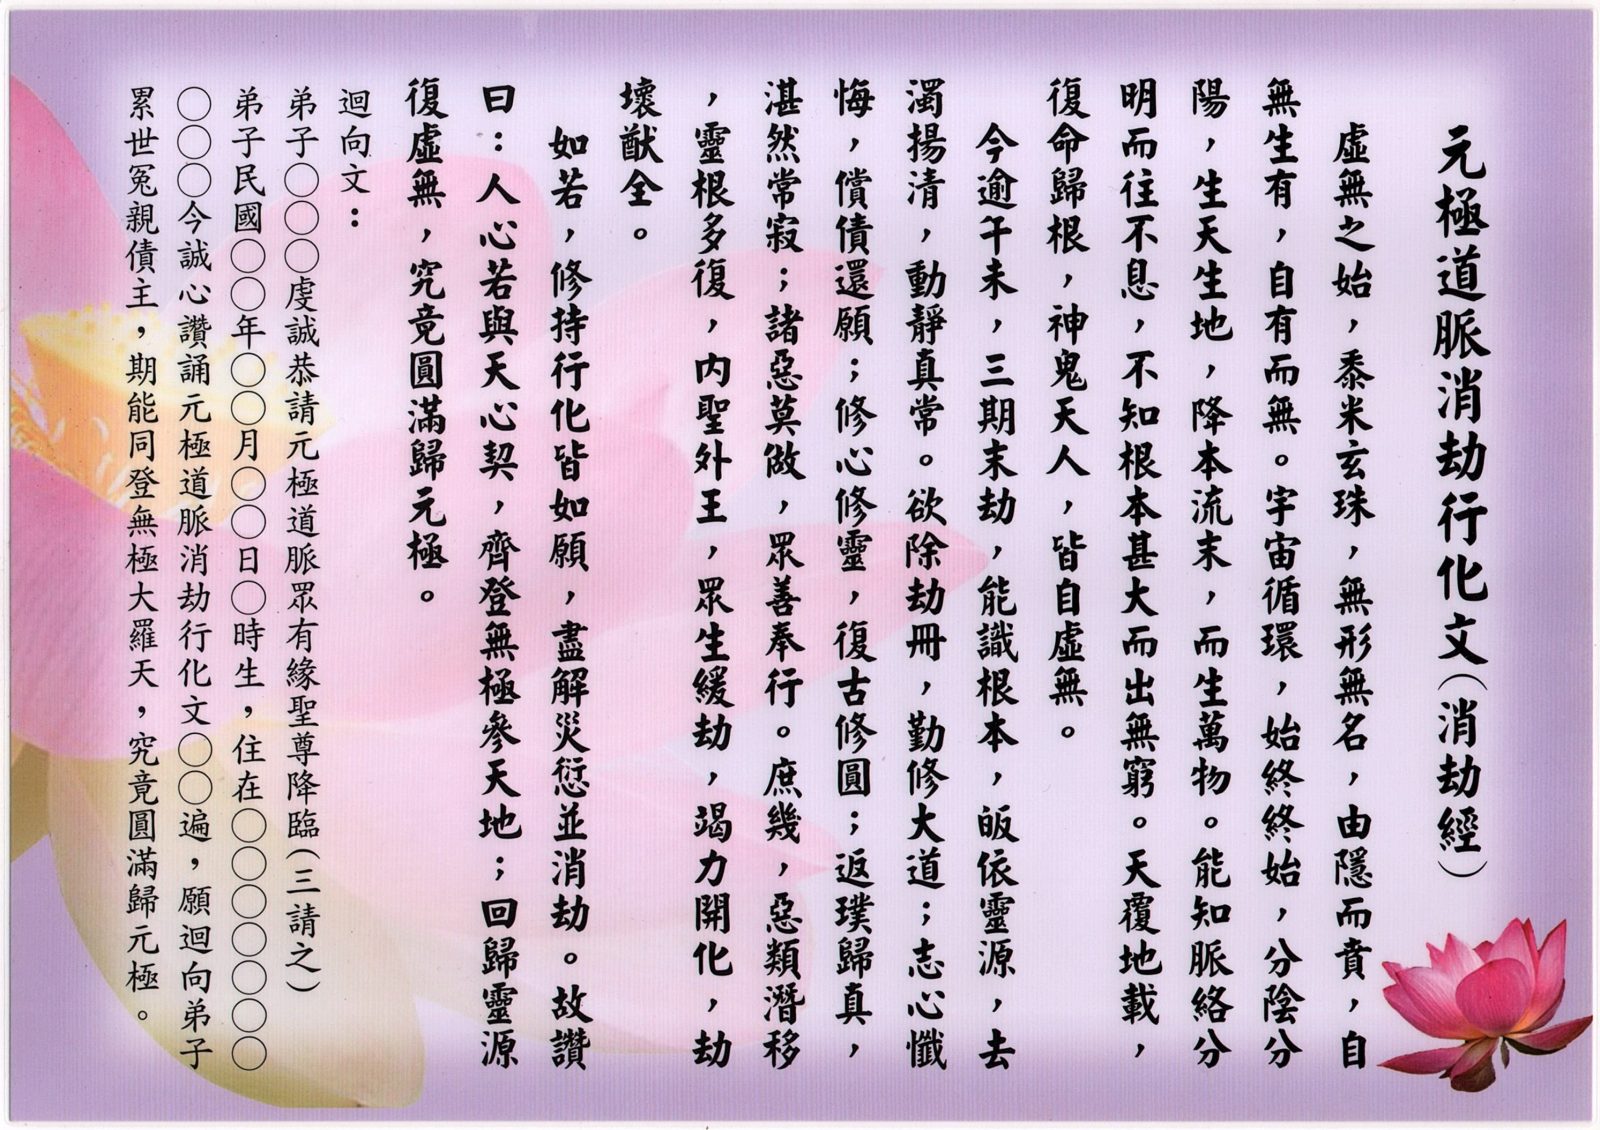 元極道脈消劫行化文(消劫經)
虛無之始，黍米玄珠，無形無名，由隱而賁，自
無生有，自有而無。宇宙循環，始終終始，分陰分
陽，生天生地，降本流末，而生萬物。能知脈絡分
明而往不息，不知根本甚大而出無窮。天覆地載，
復命歸根，神鬼天人，皆自虛無。
今逾午未，三期末劫，能識根本，皈依靈源，去
濁揚清，動靜真常。欲除劫冊，勤修大道；志心懺
悔，償債還願；修心修靈，復古修圓；返璞歸真，
湛然常寂；諸惡莫做，眾善奉行。庶幾，惡類潛移
，靈根多復，內聖外王，眾生緩劫，竭力開化，劫
壞猷全。
如若，修持行化皆如願，盡解災愆並消劫。故讚
曰：人心若與天心契，齊登無極參天地；回歸靈源
復虛無，究竟圓滿歸元極。
迴向文：
弟子○○○虔誠恭請元極道脈眾有緣聖尊降臨(三請之)
弟子民國○○年○○月○○日○時生，住在○○○○○○○
○○○今誠心讚誦元極道脈消劫行化文○○遍，願迴向弟子
累世冤親債主，期能同登無極大羅天，究竟圓滿歸元極。